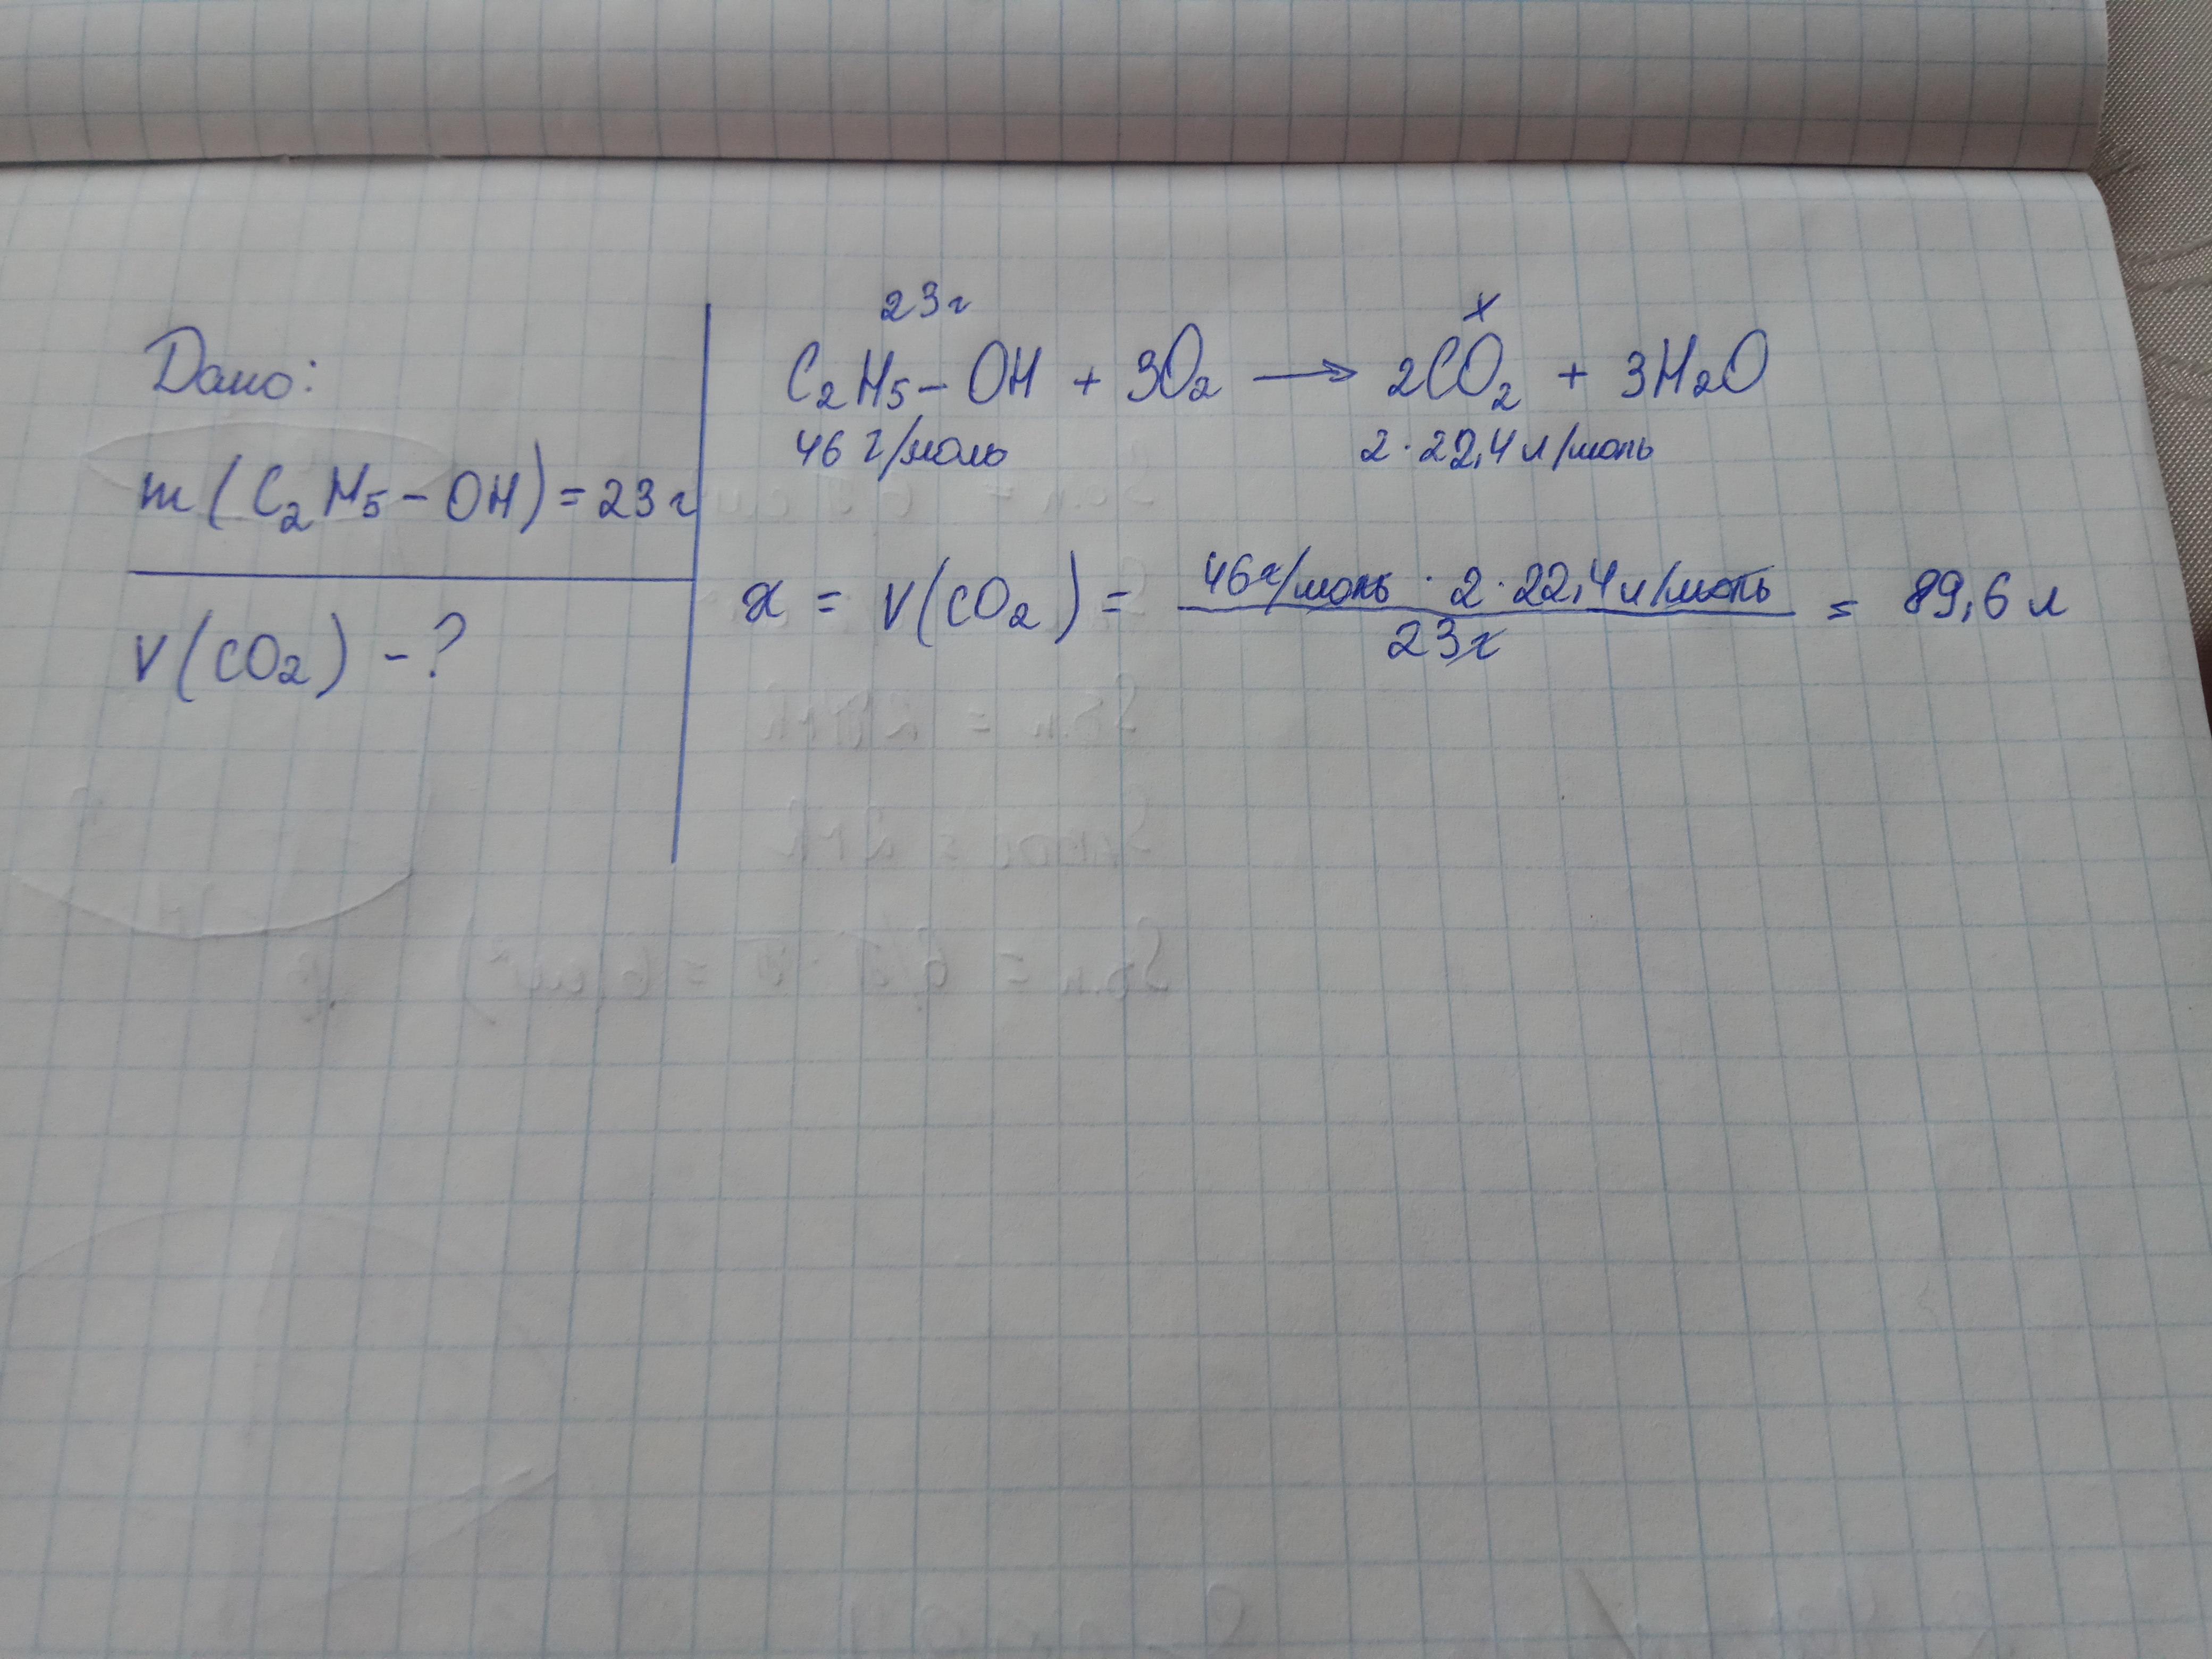 Дано:
m(C₂H₅-OH)=23г
V(CO₂) -?
23г x
C₂H₅-OH + 3O₂ → 2CO₂ + 3H₂O
46 г/моль 2·22,4 л/моль
x = V(CO₂) = 46г/моль · 2 · 22,4 л/моль / 23г = 89,6 л